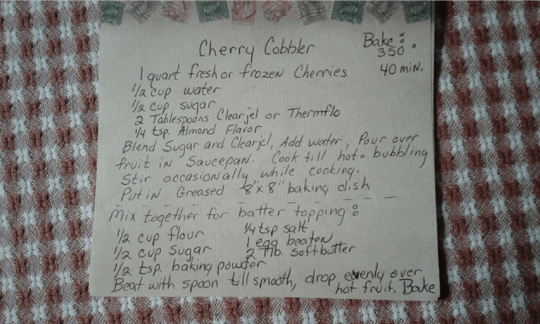 Cherry Cobbler
Bake:
350°
40 min.
1 quart fresh or frozen Cherries
1/2 cup water
1/2 cup sugar
2 Tablespoons Clearjel or Thermflo
1/4 tsp. Almond Flavor
Blend Sugar and Clearjel, Add water, Pour over
fruit in Saucepan. Cook till hot & bubbling
Stir occasionally while cooking.
Put in Greased 8"x8" baking dish
Mix together for batter topping:
1/2 cup flour 1/4 tsp salt
1/2 cup sugar 1 egg beaten
1/2 tsp. baking powder 2 Tlb. soft butter
Beat with spoon till smooth, drop evenly over
hot fruit. Bake